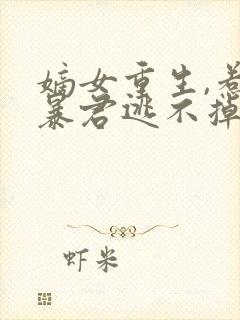 嫡女重生,惹
暴君逃不掉
虾米